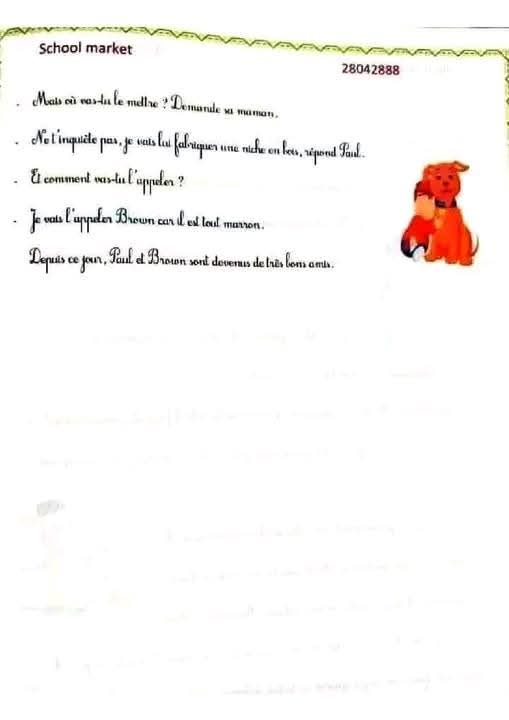 School market
28042888
. Mais où vas-tu le mettre ? Demande sa maman.
. Ne t'inquiète pas, je vais lui fabriquer une niche en bois, répond Paul.
. Et comment vas-tu l'appeler ?
. Je vais l'appeler Brown car il est tout marron.
Depuis ce jour, Paul et Brown sont devenus de très bons amis.